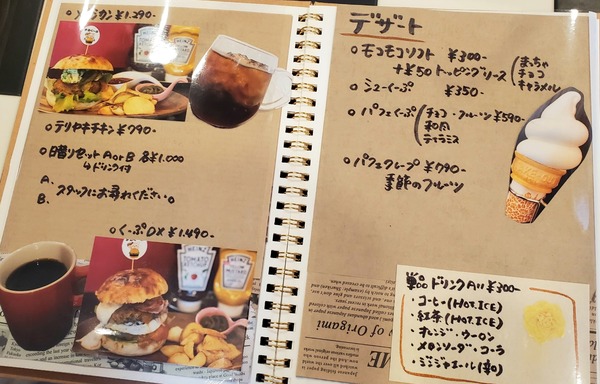 ¥1,290-
テリヤキチキン ¥990-
日替りセット A or B 各¥1,000
ドリンク付
A.
B.
スタッフにお尋ねください。
くーぷDX ¥1,490-
HEINZ
TOMATO
KETCHUP
HEINZ
デザート
モコモコソフト ¥300-
+¥50 トッピングソース
まっちゃ
チョコ
キャラメル
シューくーぷ ¥350-
パフェくーぷ
チョコ・フルーツ ¥590-
ティラミス
パフェクレープ ¥790-
季節のフルーツ
単品 ドリンク All ¥300-
・コーヒー(HOT.ICE)
・紅茶(HOT.ICE)
・オレンジ・ウーロン
・メロンソーダ・コーラ
of Origami